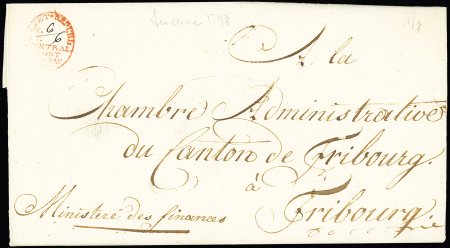 Lucerne 1798
1/8
6
6
NTRAL
A la
Chambre Administrative
du Canton de Fribourg.
à
Fribourg.
Ministere des finances